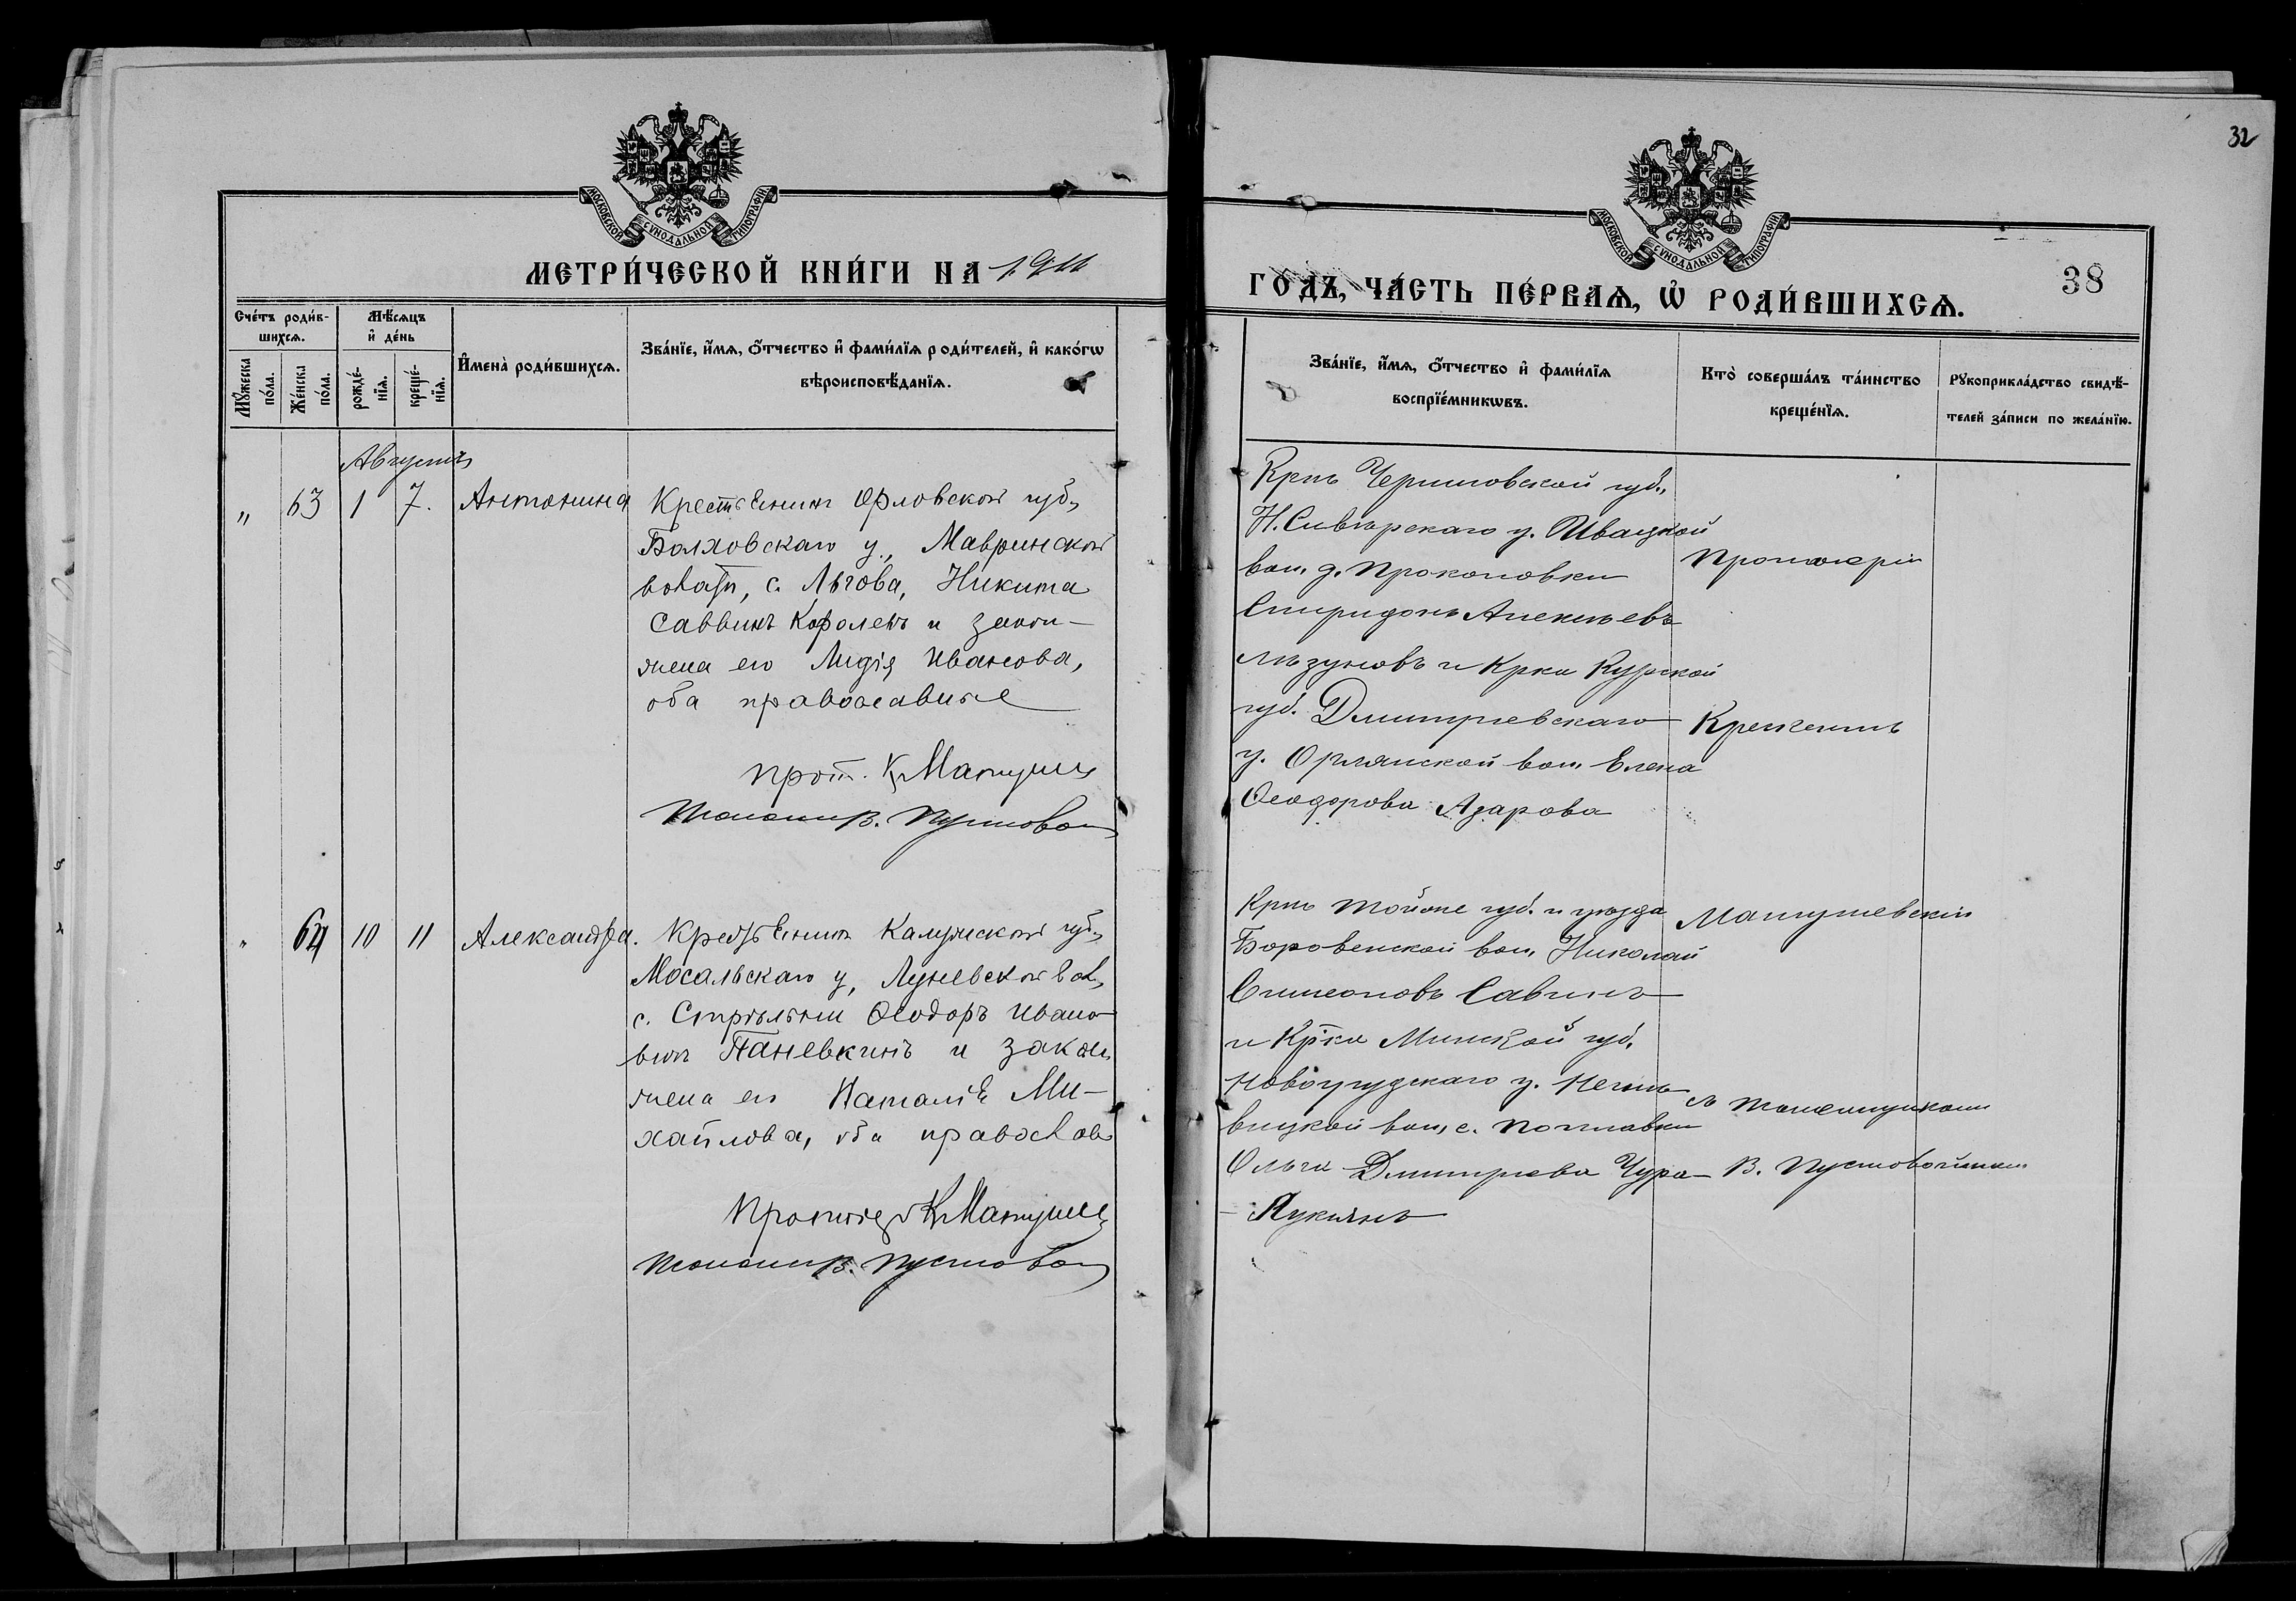 32
МОСКОВСКОЙ СѴНОДАЛЬНОЙ ТИПОГРАФІИ
МОСКОВСКОЙ СѴНОДАЛЬНОЙ ТИПОГРАФІИ
МЕТРИ́ЧЕСКОЙ КНИ́ГИ НА 1911
ГО́ДЪ, ЧА́СТЬ ПЕ́РВАѦ, Ѡ҆ РОДИ́ВШИХСѦ.
38
Сче́тъ роди́в-
шихсѧ.
Мѣ́сѧцъ
и҆ де́нь
Мꙋ́жеска
по́ла.
Же́нска
по́ла.
рожде́-
нїѧ.
креще́-
нїѧ.
И҆мена̀ роди́вшихсѧ.
Зва́нїе, и҆́мѧ, ѻ҆́тчество и҆ фами́лїѧ роди́телей, и҆ како́гѡ
вѣроисповѣ́данїѧ.
Зва́нїе, и҆́мѧ, ѻ҆́тчество и҆ фами́лїѧ
воспрїе́мникѡвъ.
Кто̀ соверша́лъ та́инство
креще́нїѧ.
Рꙋкоприкла́дство свидѣ́-
телей за́писи по жела́нїю.
Августъ
" 63 1 7. Антонина
Крестьянинъ Орловской губ.,
Болховскаго у., Мавринской
волости, с. Льгова, Никита
Саввинъ Королевъ и закон-
жена его Лидія Иванова,
оба православные
Прот. К Матуше
Псаломщ В. Пустово
Крнъ Черниговской губ.,
Н. Сиверскаго у. Ивацкой
вол. д. Прокоповки
Спиридонъ Алексѣевъ
Лѣзуновъ и Крка Курской
губ. Дмитріевскаго
у. Орлянской вол. Елена
Ѳеодорова Азарова
Протоіерей
Крещенъ
" 64 10 11 Александра.
Крестьянинъ Калужской губ.,
Мосальскаго у., Луневской вол.,
с. Стрѣльни Ѳеодоръ Ивано
вичъ Паневкинъ и закон
жена его Наталія Ми-
хайлова, оба православ
Протоіер К Матуше
Псаломщ В. Пустово
Крнъ той же губ. и уѣзда
Боровенской вол. Николай
Симеоновъ Савинъ
и Крка Минской губ.
Новогрудскаго у.
вицкой вол., с. Поплавки
Ольга Дмитріева Чура-
Лукьянъ
Матушевскій
съ псаломщикомъ
В. Пустовойтов